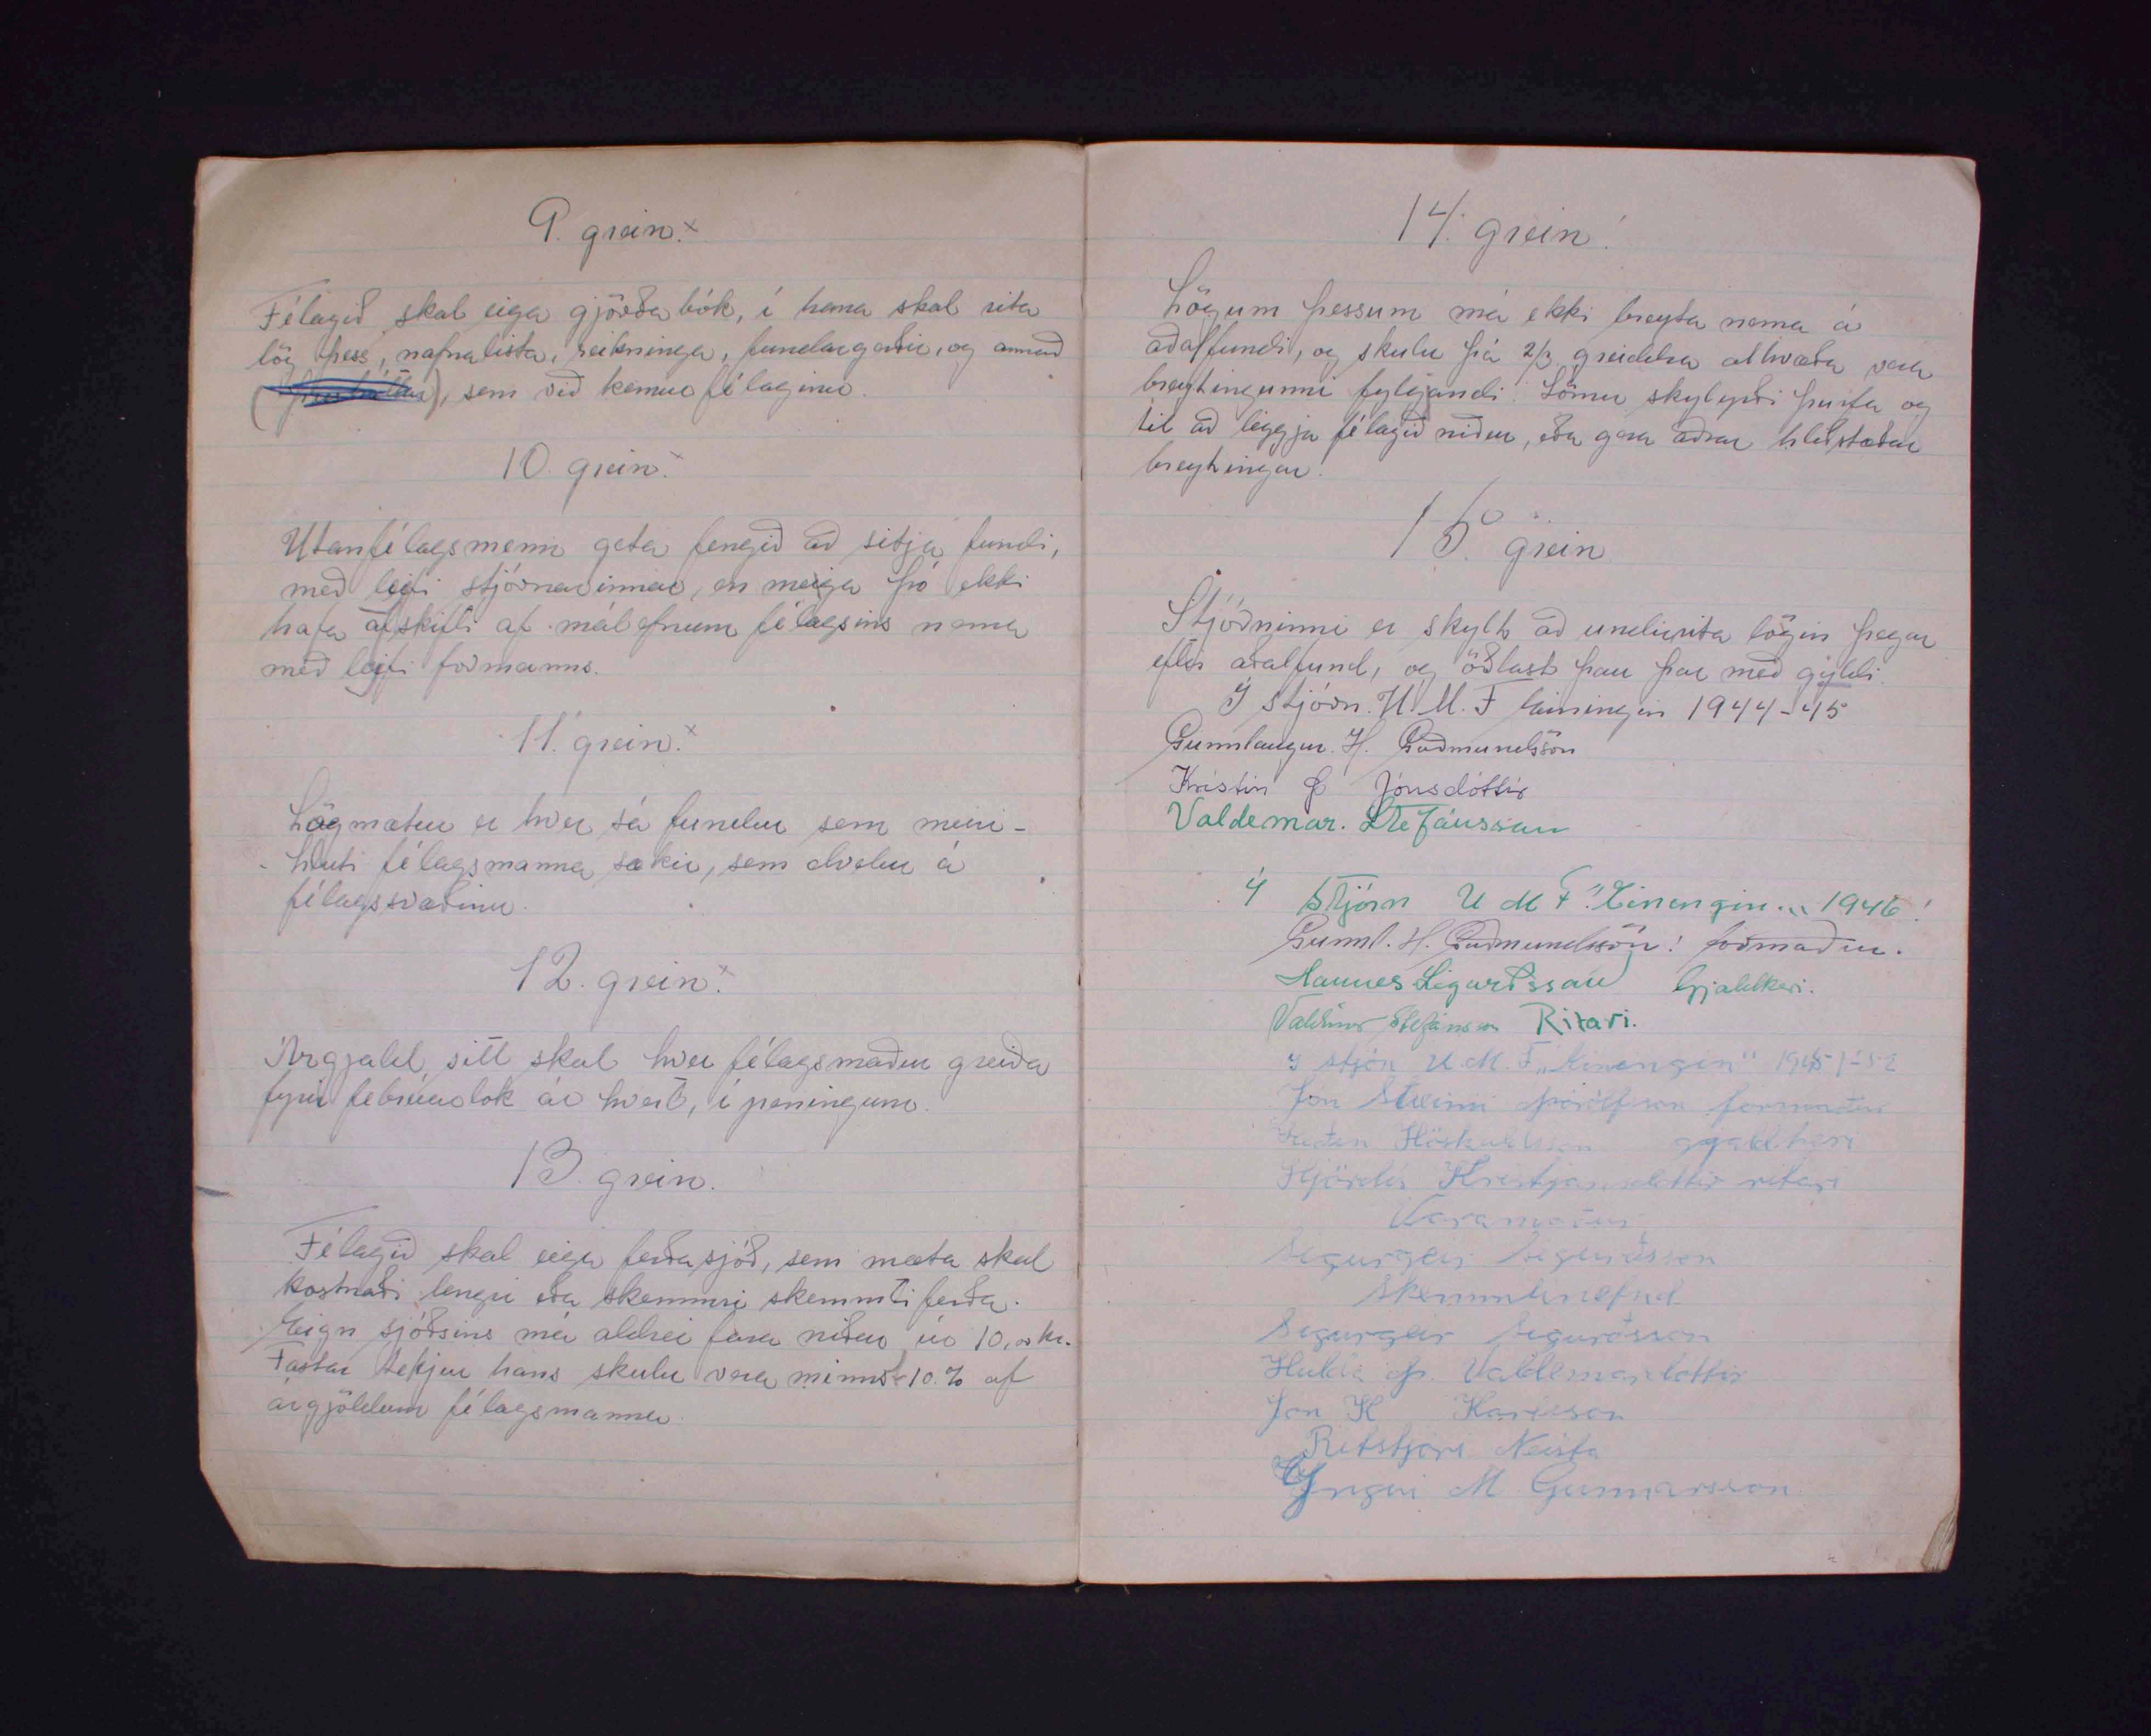 9. grein.x
Félagið skal eiga gjörðabók, í hana skal rita
lög þess, nafnalista, reikninga, fundargerðir, og annað
sem við kemur félaginu.
10. grein.x
Utanfélagsmenn geta fengið að sitja fundi,
með leyfi stjórnarinnar, en meiga þó ekki
hafa afskifti af málefnum félagsins nema
með leyfi formanns.
11. grein.x
Lögmætur er hver sá fundur sem meiri-
hluti félagsmanna sækir, sem dvelur á
félagssvæðinu.
12. grein.x
Árgjald sitt skal hver félagsmaður greiða
fyrir febrúarlok ár hvert, í peningum.
13. grein.
Félagið skal eiga ferðasjóð, sem mæta skal
kostnaði lengri eða skemmri skemmtiferða.
Eign sjóðsins má aldrei fara niður úr 10,00 kr.
Fastar tekjur hans skulu vera minnst 10.% af
árgjöldum félagsmanna.
14. grein.
Lögum þessum má ekki breyta nema á
aðalfundi, og skulu þá 2/3 greiddra atkvæða vera
breytingunni fylgjandi. Sömu skylyrði þurfa og
til að leggja félagið niður, eða gera aðrar hliðstæðar
breytingar.
15. grein
Stjórninni er skylt að undirrita lögin þegar
eftir aðalfund, og öðlast þau þar með gyldi.
Í stjórn. U. M. F Einingin 1944-45
Gunnlaugur. H. Guðmundsson
Kristín Þ Jónsdóttir
Valdemar. Stefánsson
Í Stjórn U M F "Einengin" 1946!
Gunnl. H. Guðmundsson! formaður.
Hannes Sigurðsson Gjaldkeri.
Valdimar Stefánsson Ritari.
Í stjórn U. M. F. „Einengin" 1951-52
Jón Steinn formaður
Höskuldsson gjaldkeri
Hjördís Kristjánsdóttir ritari
Varamaður
Sigurgeir Sigurðsson
Skemmtinefnd
Sigurgeir Sigurðsson
Hulda Þ. Valdemarsdóttir
Jón H Karlsson
Ritstjóri Neista
Yngvi M Gunnarsson